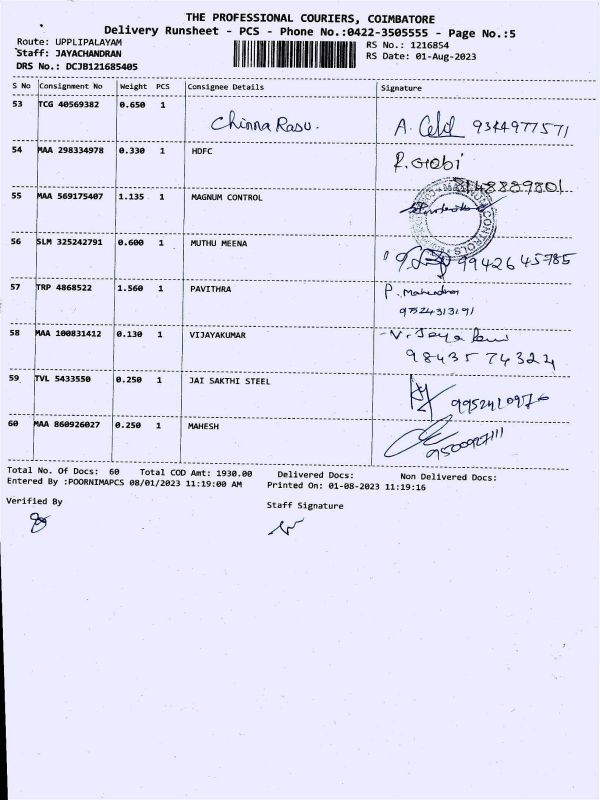 THE PROFESSIONAL COURIERS, COIMBATORE
Delivery Runsheet - PCS - Phone No.:0422-3505555 - Page No.:5
Route: UPPLIPALAYAM RS No.: 1216854
Staff: JAYACHANDRAN RS Date: 01-Aug-2023
DRS No.: DCJB121685405
S No Consignment No Weight PCS Consignee Details Signature
53 TCG 40569382 0.650 1
Chinna Rasu. A. 9344977571
54 MAA 298334978 0.330 1 HDFC
R. Gobi
55 MAA 569175407 1.135 1 MAGNUM CONTROL
56 SLM 325242791 0.600 1 MUTHU MEENA
9942645785
57 TRP 4868522 1.560 1 PAVITHRA P. Mahendran
9524313191
58 MAA 100831412 0.130 1 VIJAYAKUMAR
98435 74324
59 TVL 5433550 0.250 1 JAI SAKTHI STEEL
9952410976
60 MAA 860926027 0.250 1 MAHESH
Total No. Of Docs: 60 Total COD Amt: 1930.00 Delivered Docs: Non Delivered Docs:
Entered By :POORNIMAPCS 08/01/2023 11:19:00 AM Printed On: 01-08-2023 11:19:16
Verified By Staff Signature